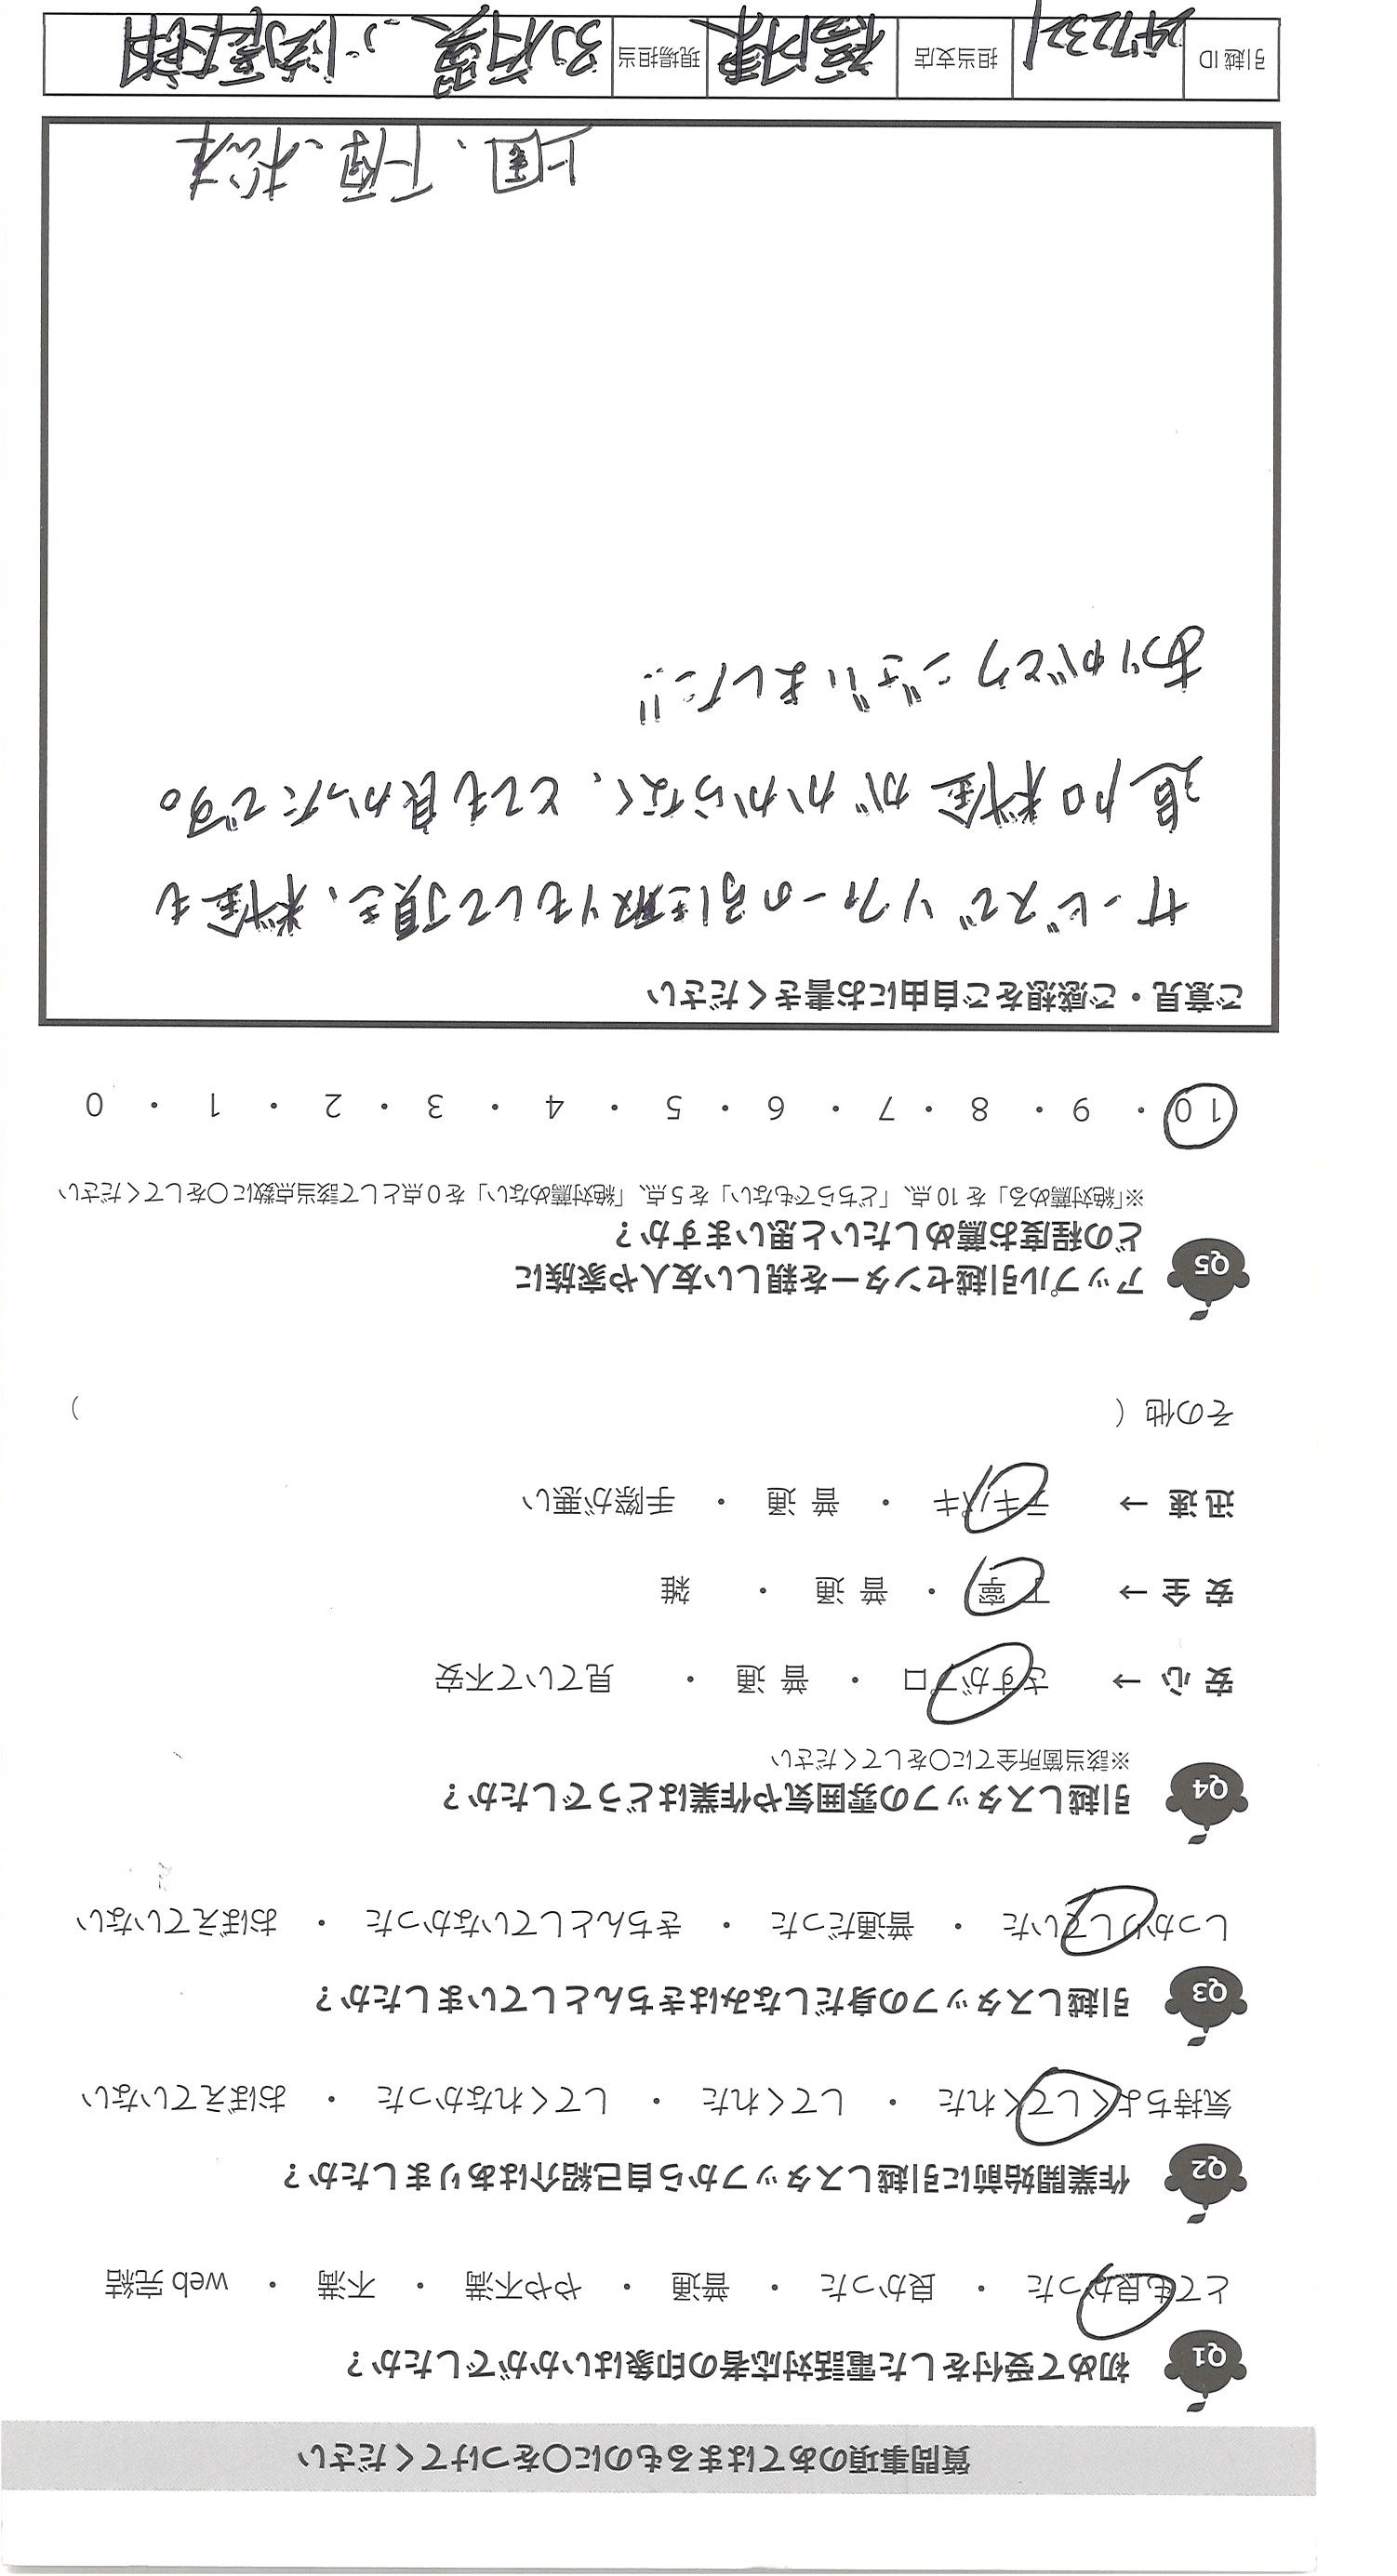 質問事項のあてはまるものに○をつけてください
Q1 初めて受付をした電話対応者の印象はいかがでしたか？
とても良かった ・ 良かった ・ 普通 ・ やや不満 ・ 不満 ・ web完結
Q2 作業開始前に引越しスタッフから自己紹介はありましたか？
気持ちよくしてくれた ・ してくれた ・ してくれなかった ・ おぼえていない
Q3 引越しスタッフの身だしなみはきちんとしていましたか？
しっかりしていた ・ 普通だった ・ きちんとしていなかった ・ おぼえていない
Q4 引越しスタッフの雰囲気や作業はどうでしたか？
※該当箇所全てに○をしてください
安心 → さすがプロ ・ 普通 ・ 見ていて不安
安全 → 丁寧 ・ 普通 ・ 雑
迅速 → テキパキ ・ 普通 ・ 手際が悪い
その他（ ）
Q5 アップル引越センターを親しい友人や家族に
どの程度お薦めしたいと思いますか？
※「絶対薦める」を10点、「どちらでもない」を5点、「絶対薦めない」を0点として該当点数に○をしてください
10 ・ 9 ・ 8 ・ 7 ・ 6 ・ 5 ・ 4 ・ 3 ・ 2 ・ 1 ・ 0
ご意見・ご感想をご自由にお書きください
サービスでソファーの引き取りもして頂き、料金も
追加料金がかからなく、とても良かったです。
ありがとうございました!!
上園、下
引越ID 担当支店 現場担当